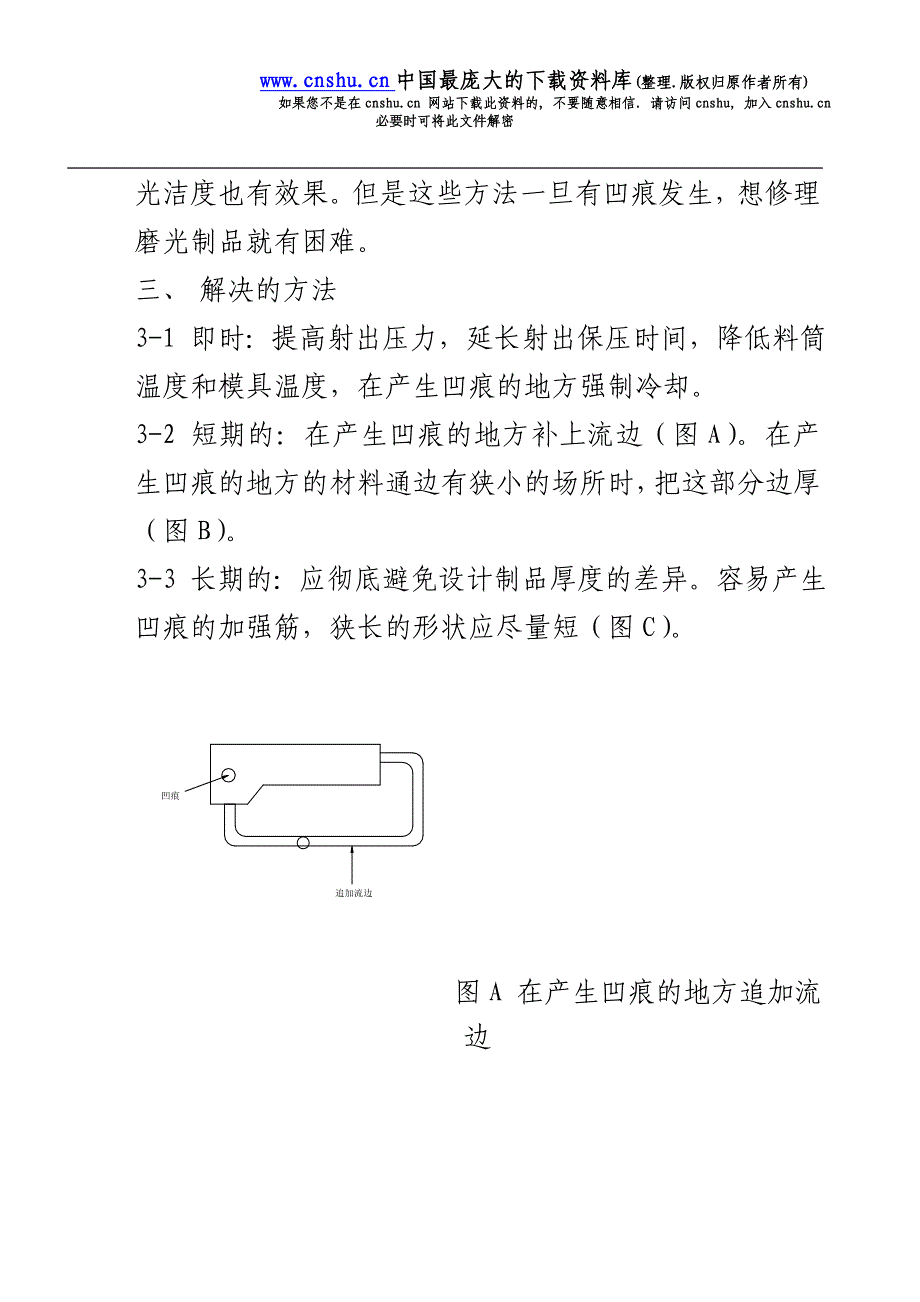 www.cnshu.cn 中国最庞大的下载资料库(整理.版权归原作者所有)
如果您不是在 cnshu.cn 网站下载此资料的, 不要随意相信. 请访问 cnshu, 加入 cnshu.cn
必要时可将此文件解密
光洁度也有效果。但是这些方法一旦有凹痕发生, 想修理
磨光制品就有困难。
三、 解决的方法
3-1 即时: 提高射出压力, 延长射出保压时间, 降低料筒
温度和模具温度, 在产生凹痕的地方强制冷却。
3-2 短期的: 在产生凹痕的地方补上流边(图 A)。在产
生凹痕的地方的材料通边有狭小的场所时, 把这部分边厚
(图 B)。
3-3 长期的: 应彻底避免设计制品厚度的差异。容易产生
凹痕的加强筋, 狭长的形状应尽量短(图 C)。
凹痕
追加流边
图 A 在产生凹痕的地方追加流
边